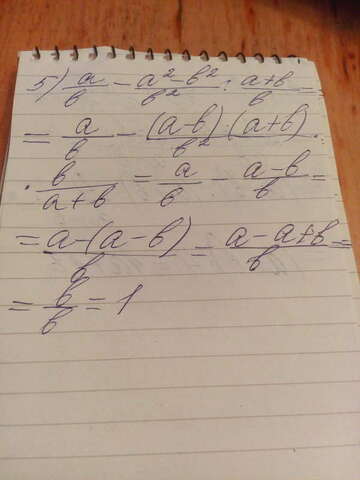 5) a/b - a²-b²/b² : a+b/b =
= a/b - (a-b)·(a+b)/b² ·
· b/a+b = a/b - a-b/b =
= a-(a-b)/b = a-a+b/b =
= b/b = 1